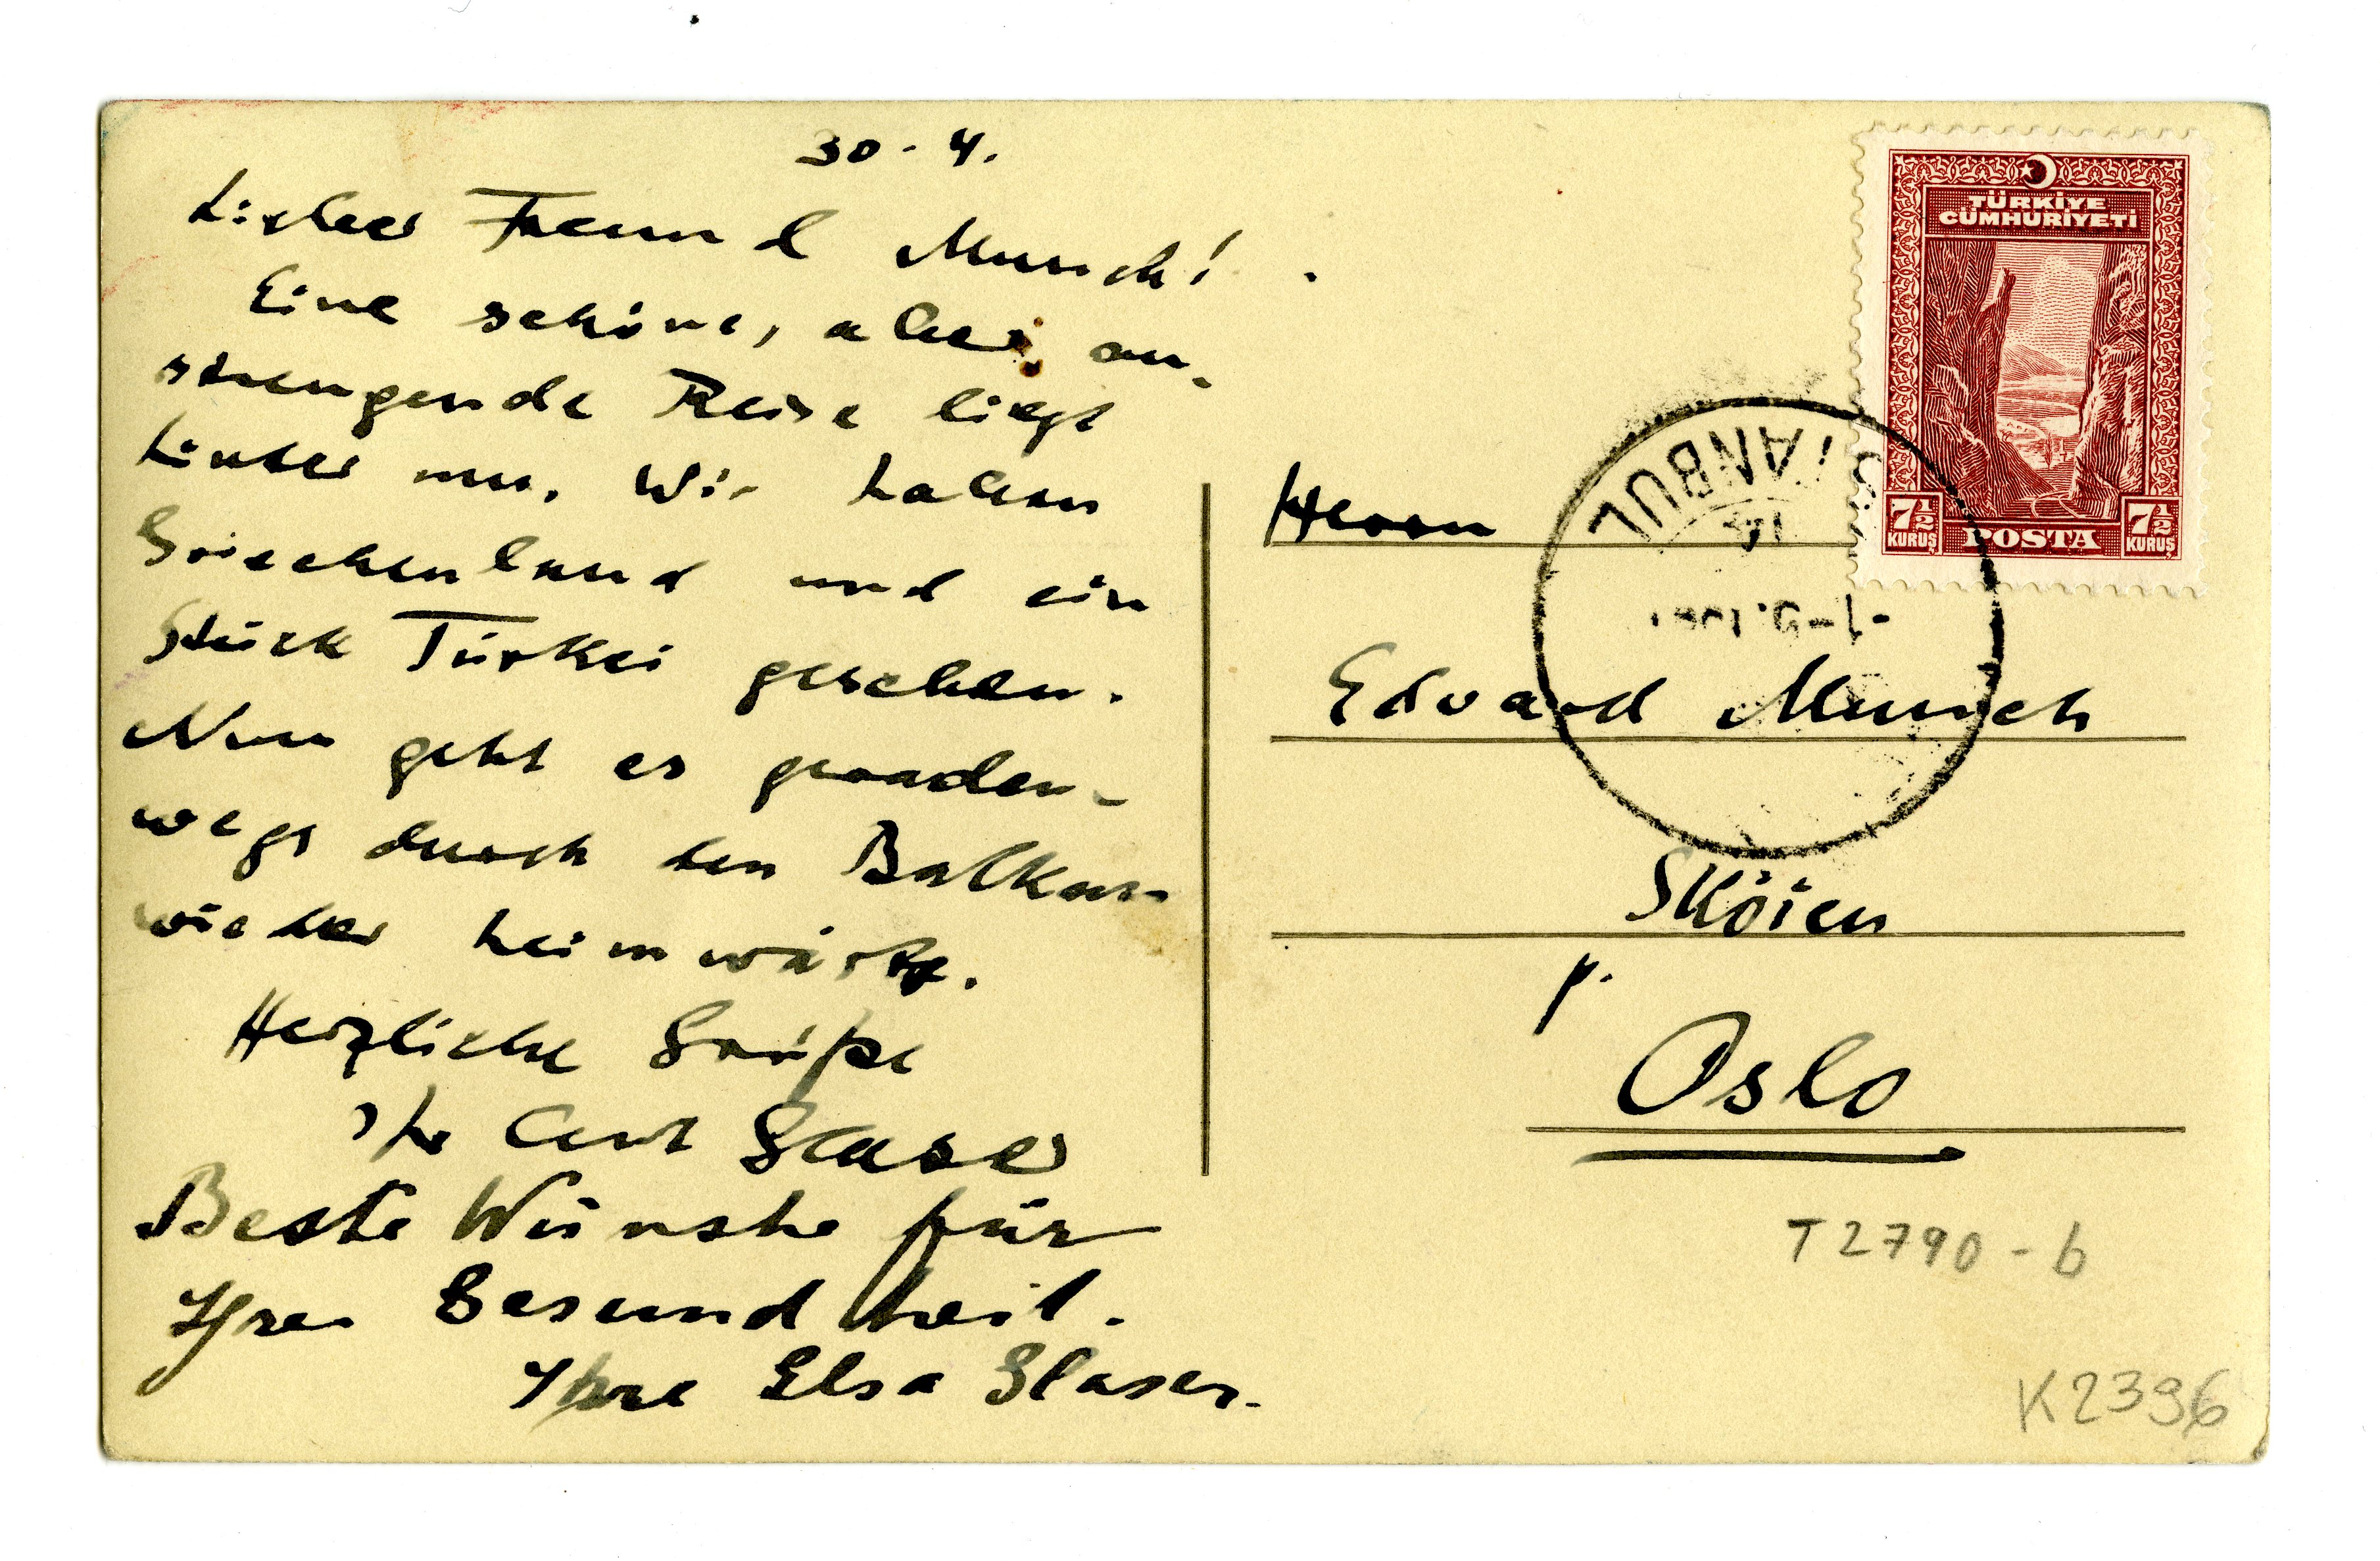 30.4.
Lieber Freund Munch!
Eine schöne, aber an-
strengende Reise liegt
hinter uns. Wir haben
Griechenland und ein
Stück Türkei gesehen.
Nun geht es geraden-
wegs durch den Balkan
wieder heimwärts.
Herzliche Grüße
Ihr Curt Glaser
Beste Wünsche für
Ihre Gesundheit.
Ihre Elsa Glaser.
TÜRKİYE
CÜMHURİYETİ
7½ KURUŞ
POSTA
7½ KURUŞ
ISTANBUL
Herrn
Edvard Munch
Sköien
p.
Oslo
T2790-b
K2396